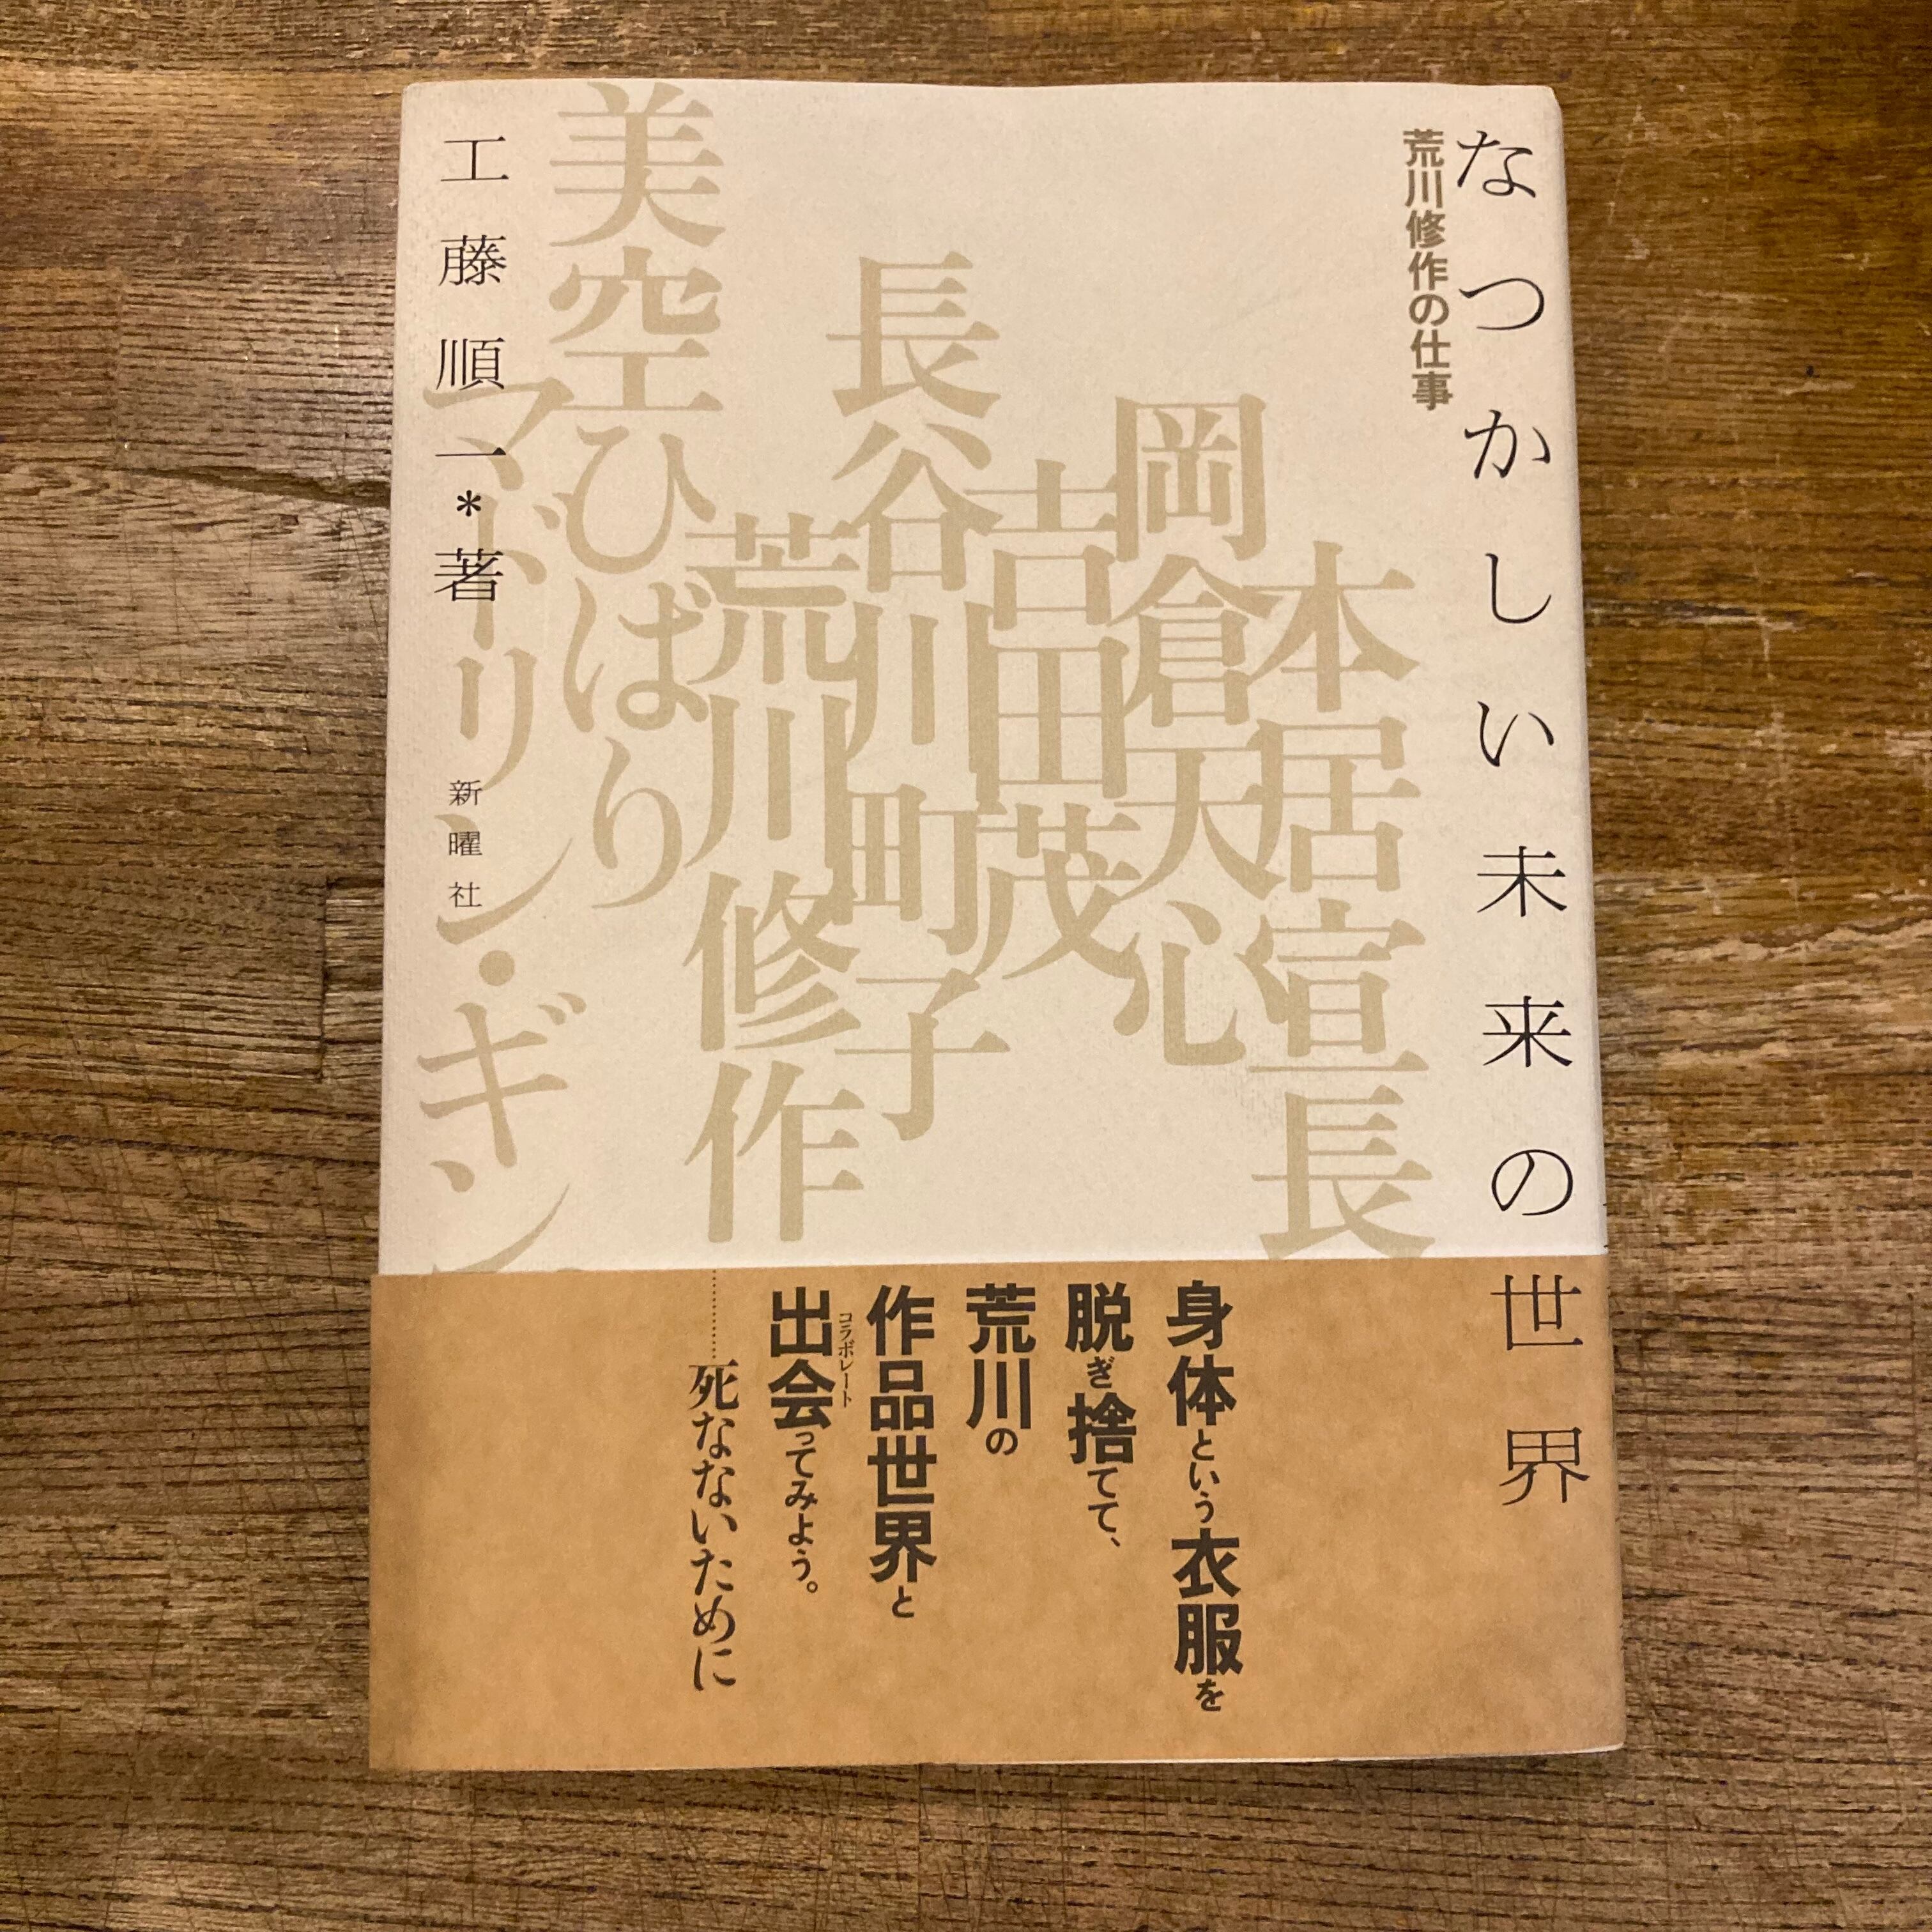 なつかしい未来の世界
荒川修作の仕事
本居宣長
岡倉天心
吉田茂
長谷川町子
荒川修作
美空ひばり
マドリン・ギンズ
工藤順一*著
新曜社
身体という衣服を
脱ぎ捨てて、
荒川の
作品世界と
コラボレート
出会ってみよう。
………死なないために